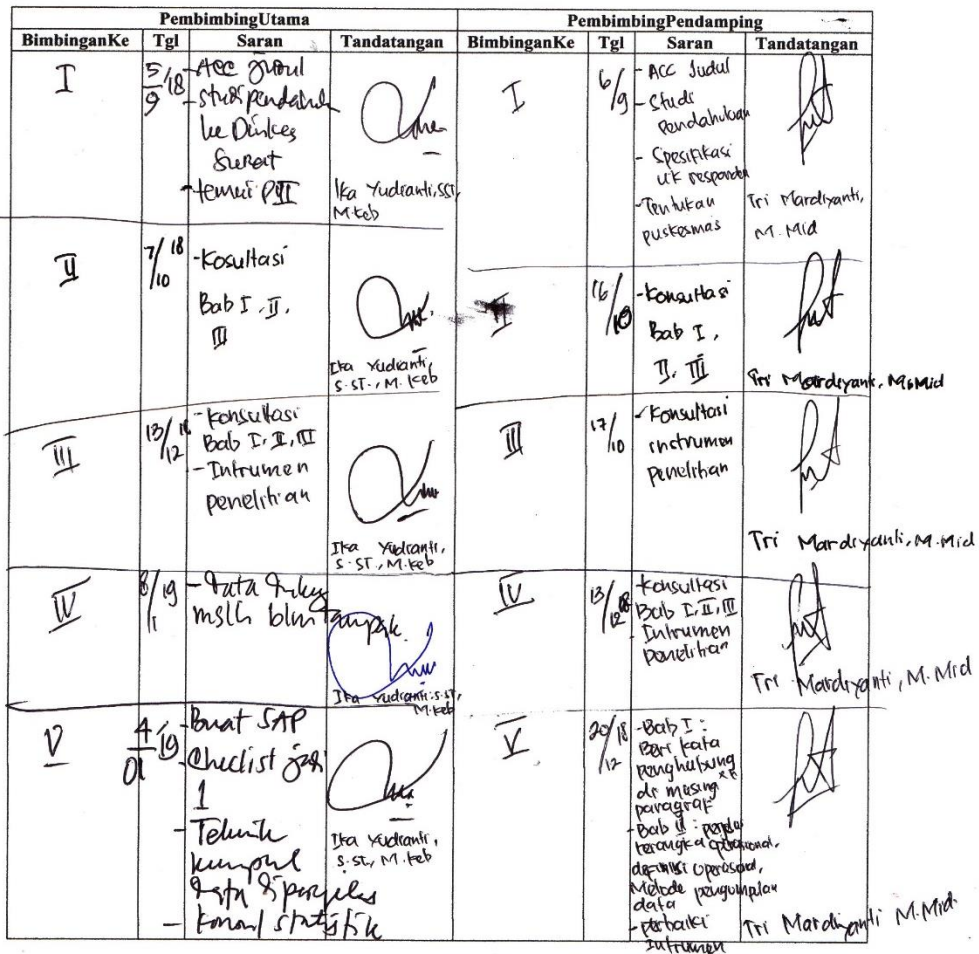 PembimbingUtama PembimbingPendamping
BimbinganKe Tgl Saran Tandatangan BimbinganKe Tgl Saran Tandatangan
I
5/9 '18
- Acc Judul
- Studi pendahulu
ke Dinkes
Surat
- temui PII
Ika Yudianti, SST,
M.Keb
I
6/9
- ACC Judul
- Studi
Pendahuluan
- Spesifikasi
uk responden
- Tentukan
puskesmas
Tri Mardiyanti,
M. Mid
II
7/10 18
- Kosultasi
Bab I, II,
III
Ika Yudianti,
S.ST., M. Keb
II
16/10
- Konsultasi
Bab I,
II, III
Tri Mardiyanti, M.Mid
III
13/12 18
- Konsultasi
Bab I, II, III
- Intrumen
penelitian
Ika Yudianti,
S.ST., M.Keb
III
17/10
- Konsultasi
instrumen
penelitian
Tri Mardiyanti, M.Mid
IV
8/1 19
- Data
mslh blm tampak.
Ika Yudianti S.ST,
M.Keb
IV
13/12 18
Konsultasi
Bab I, II, III
Intrumen
penelitian
Tri Mardiyanti, M.Mid
V
4/01 19
- Buat SAP
- Checlist jadi
1
- Teknik
kumpul
data diperjelas
- statistik
Ika Yudianti,
S.ST., M.Keb
V
20/12 18
- Bab I :
Beri kata
penghubung
di masing
paragraf
- Bab
kerangka operasional,
definisi operasional,
Metode pengumplan
data
- perbaiki
Intrumen
Tri Mardiyanti M.Mid